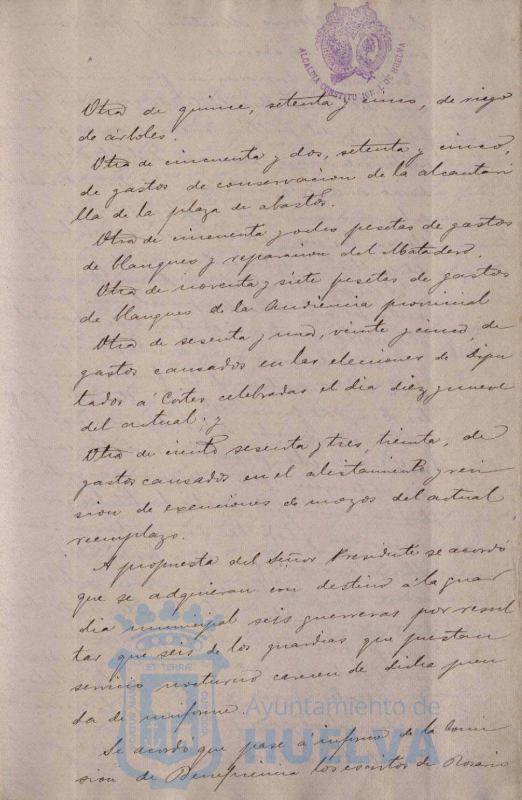 ALCALDIA CONSTITUCIONAL DE HUELVA
Otra de quince, setenta y cinco, de riego
de árboles.
Otra de cincuenta y dos, setenta y cinco,
de gastos de conservacion de la alcantari
lla de la plaza de abastos.
Otra de cincuenta y ocho pesetas de gastos
de blanqueo y reparacion del Matadero.
Otra de noventa y siete pesetas de gastos
de blanqueo de la Audiencia provincial
Otra de sesenta y una, veinte y cinco, de
gastos causados en las elecciones de Dipu
tados á Cortes celebradas el dia diez y nueve
del actual; y
Otra de ciento sesenta y tres, treinta, de
gastos causados en el alistamiento y revi
sion de exenciones de mozos del actual
reemplazo.
A propuesta del Señor Presidente se acordó
que se adquieran con destino á la guar
dia municipal seis guerreras por resul
tar que seis de los guardias que prestan
servicio nocturno carecen de dicha pren
da de uniforme.
Se acordó que pase á informe de la Comi
sion de Beneficencia los escritos de Rosario
ET TERRÆ
Ayuntamiento de
HUELVA